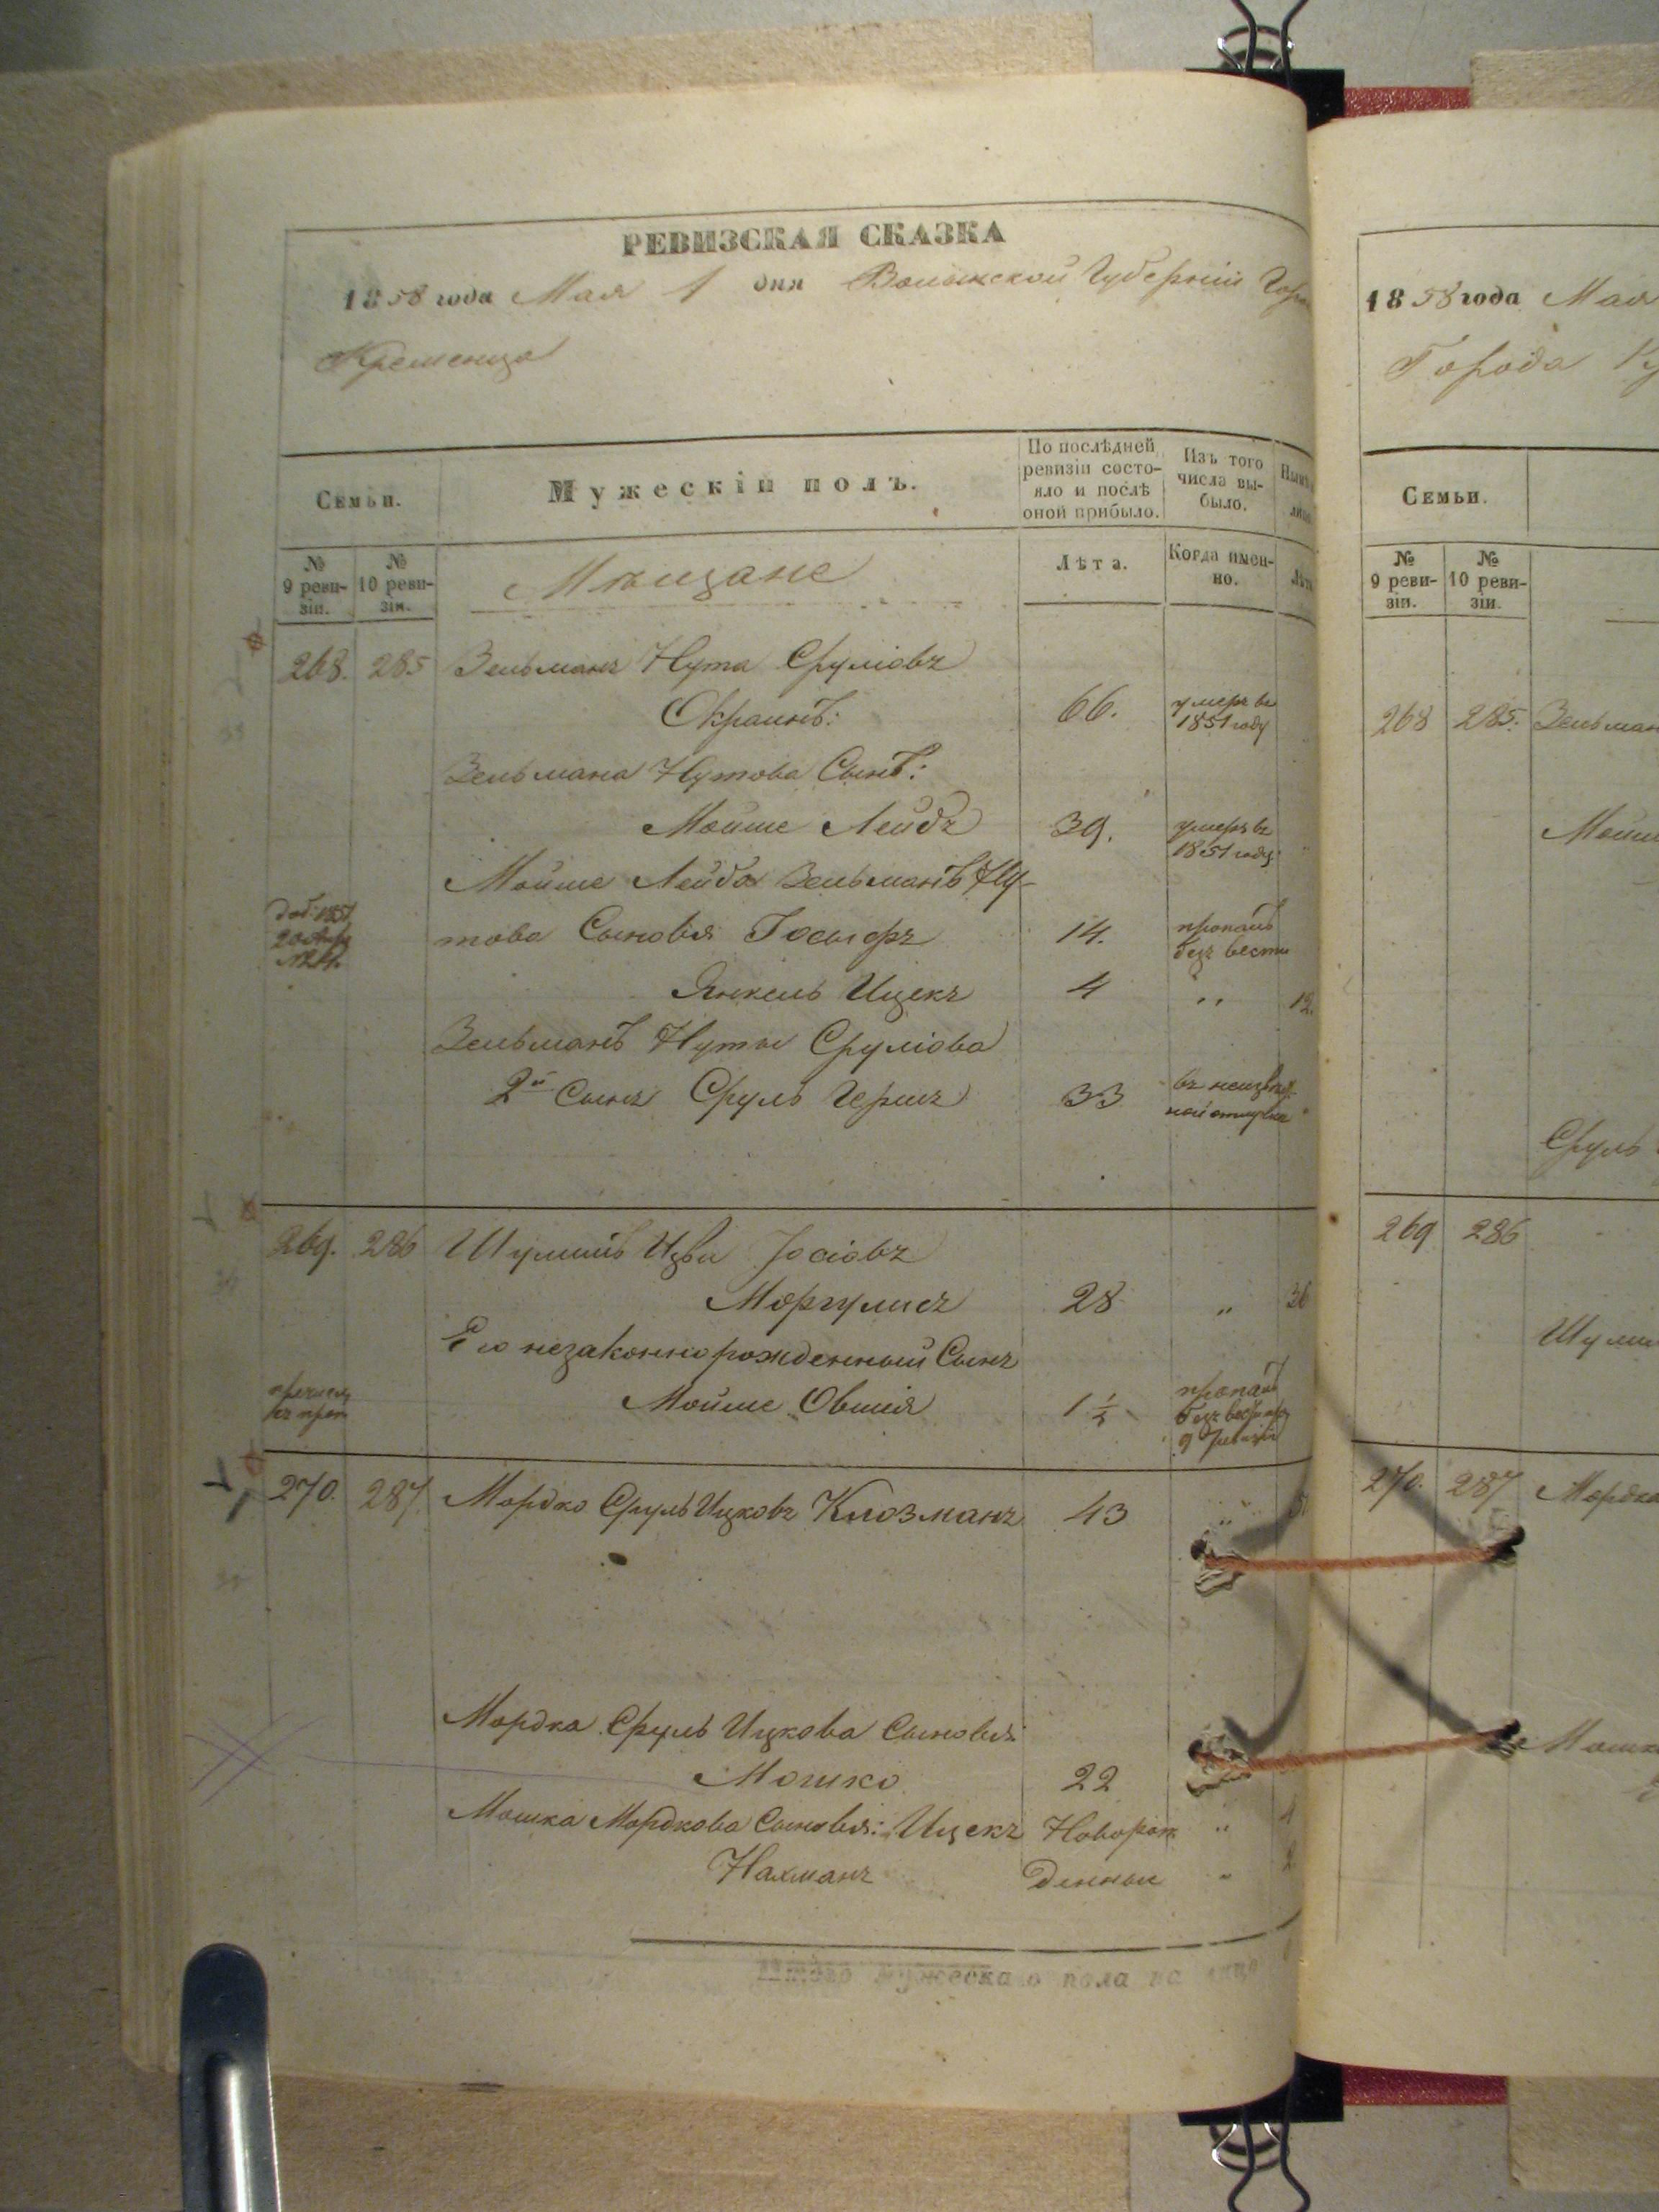 РЕВИЗСКАЯ СКАЗКА
1858 года Мая 1 дня Волынской Губерніи
Кременца
Семьи.
Мужескій полъ.
По послѣдней ревизіи состо-
яло и послѣ
оной прибыло.
Изъ того
числа вы-
было.
№
9 реви-
зіи.
№
10 реви-
зіи.
Мѣщане
Лѣта.
Когда имен-
но.
268. 285 Зельманъ Нута Сруліовъ
Окраинъ: 66. умеръ въ
1851 году
Зельмана Нутова Сынъ:
Мойше Лейбъ 39. умеръ въ
1851 году
Мойше Лейба Зельманъ Ну-
това Сыновья Іосьифъ 14. пропалъ
безъ вести
Янкель Ицекъ 4 „ 12.
Зельманъ Нуты Сруліова
2й Сынъ Сруль Гершъ 33 въ неизвѣст-
ной отлучке
269. 286 Шулимъ Цви Іосіовъ
Моргулисъ 28 „ 36
Его незаконнорожденный Сынъ
Мойше Овшія 1½ пропалъ
безъ вести
9 ревизіи
270. 287. Мордко Сруль Ицковъ Клозманъ 43 „
Мордка Сруль Ицкова Сыновья:
Мошко 22
Мошка Мордкова Сыновья: Ицекъ Новорож „ 4
Нахманъ денные „ 2
Итого мужескаго пола на лицо
1858 года Мая
Города
Семьи.
№
9 реви-
зіи.
№
10 реви-
зіи.
268 285. Зельман
Мойш
Сруль
269 286
Шулим
270. 287 Мордка
Мошка